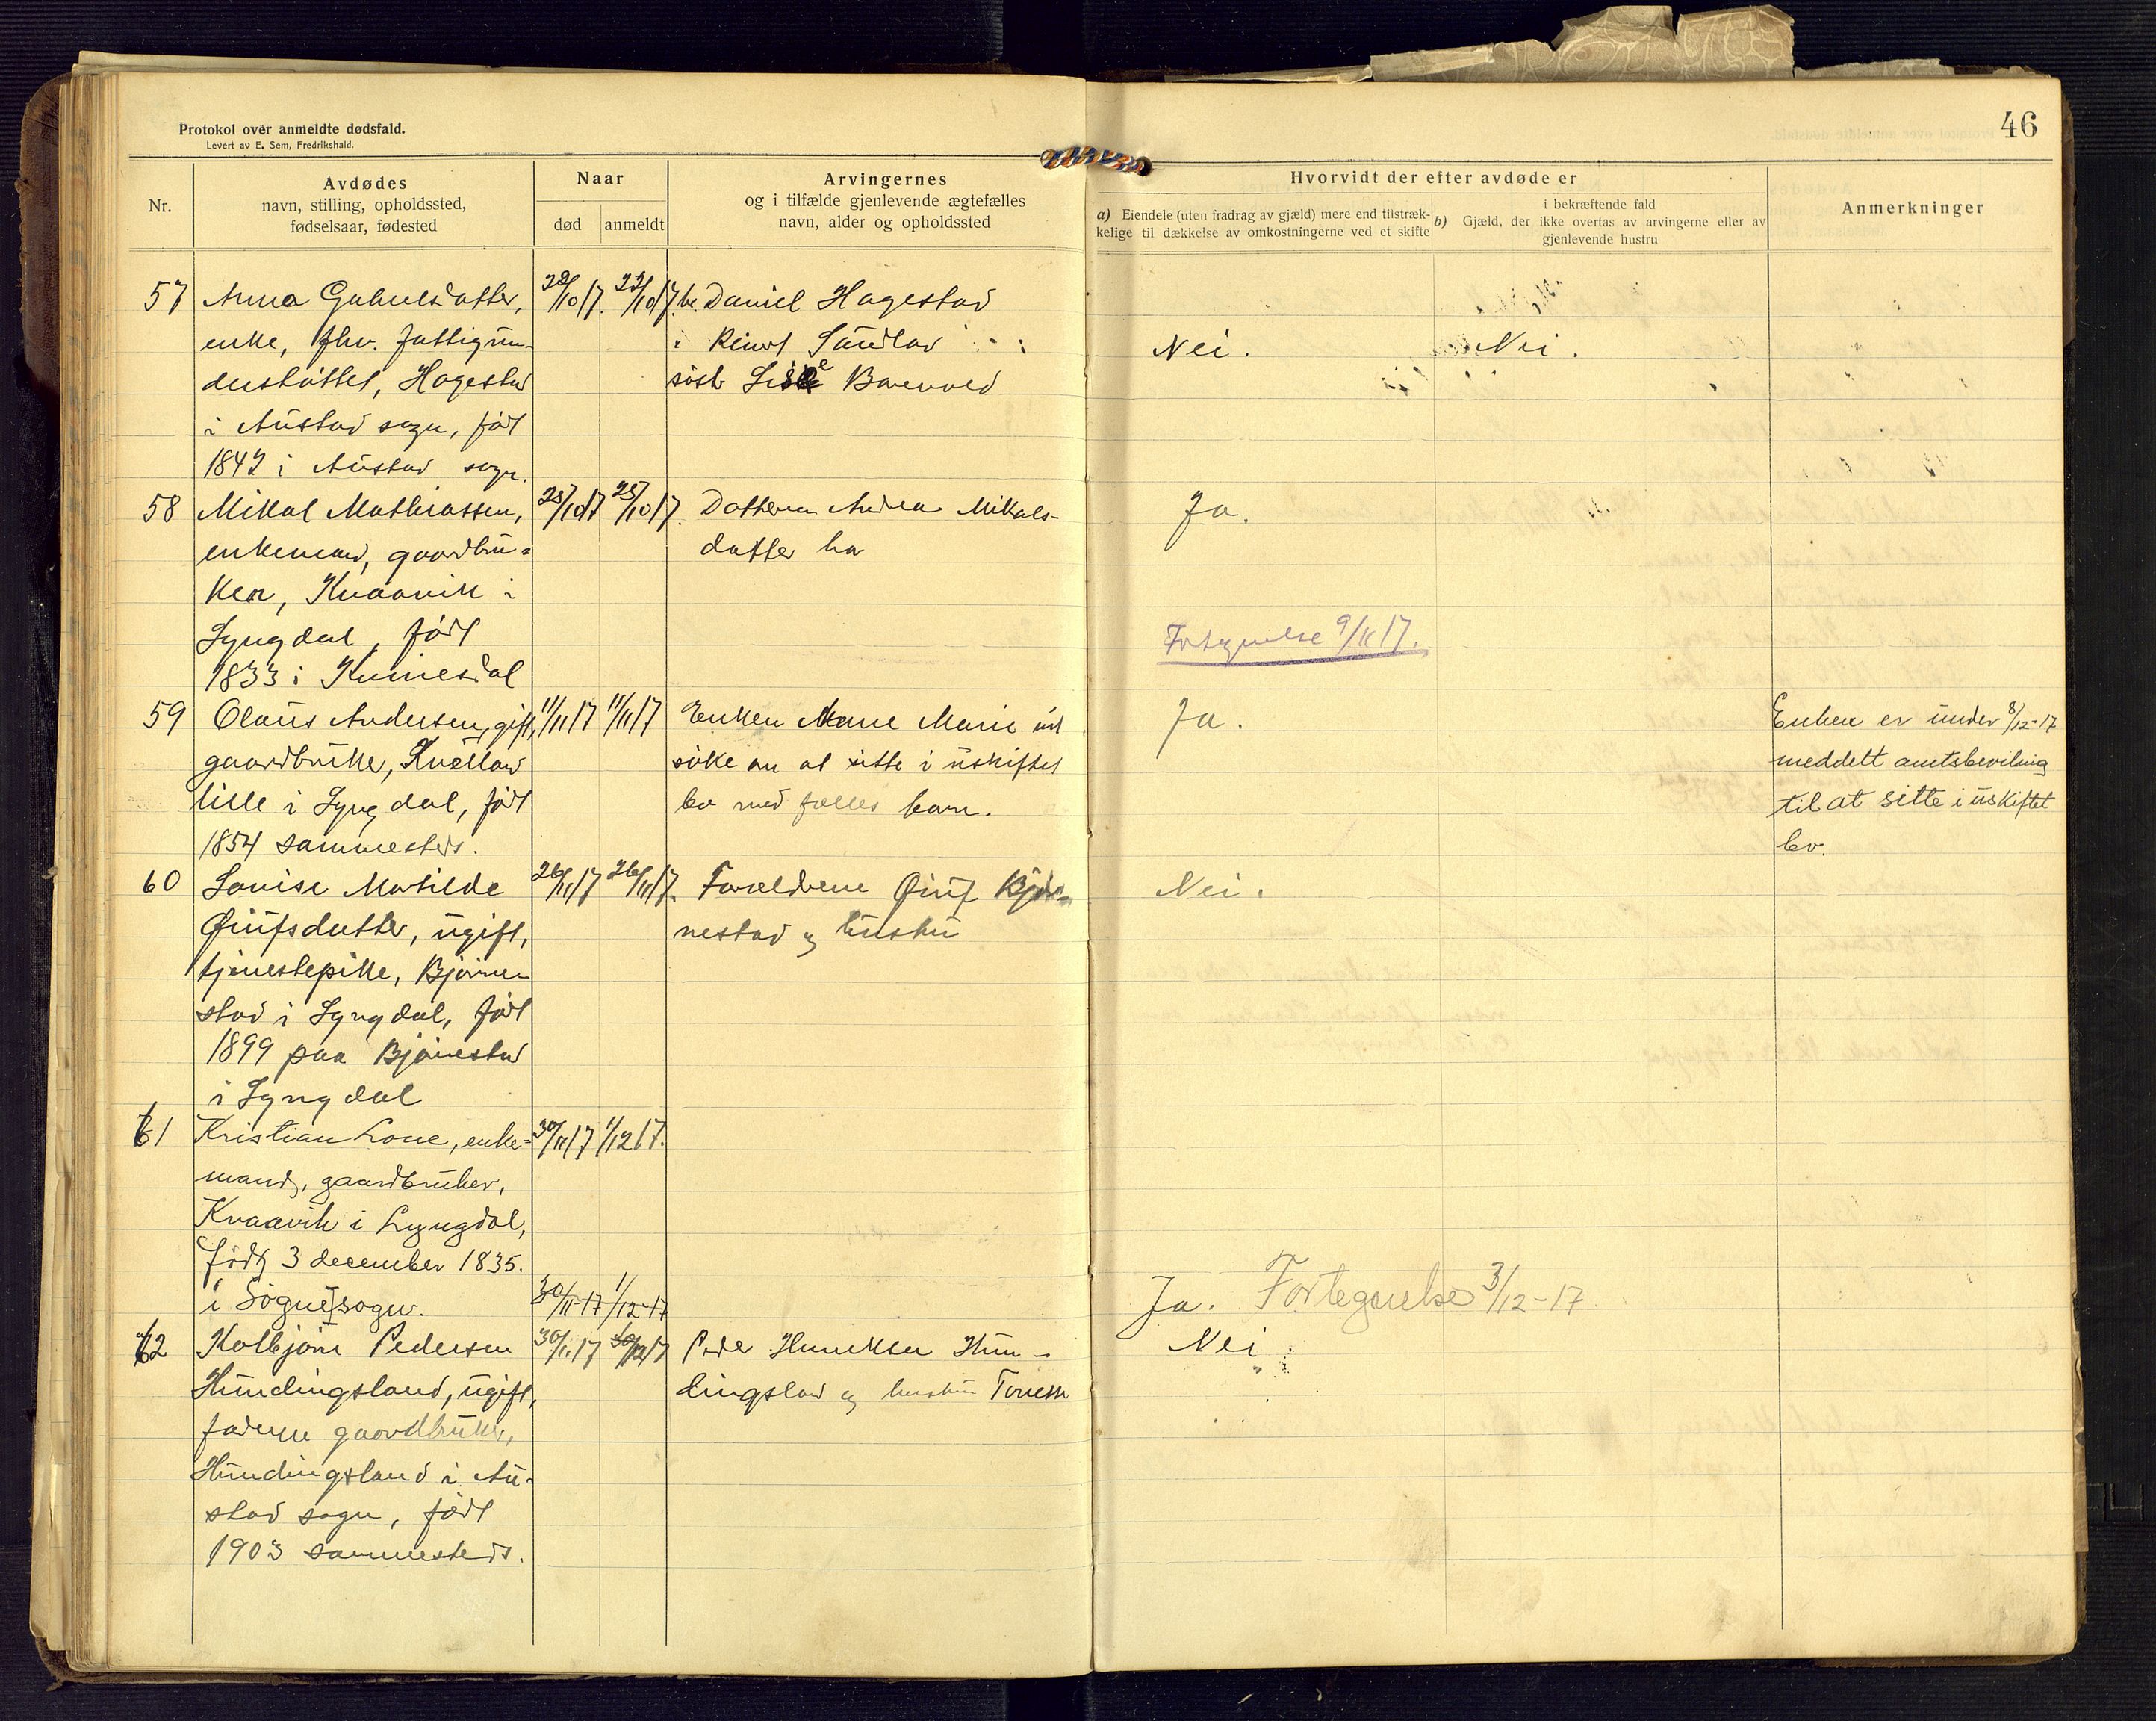 Protokol over anmeldte dødsfald.
Levert av E. Sem, Fredrikshald.
46
Nr.
Avdødes
navn, stilling, opholdssted,
fødselsaar, fødested
Naar
død
anmeldt
Arvingernes
og i tilfælde gjenlevende ægtefælles
navn, alder og opholdssted
Hvorvidt der efter avdøde er
a) Eiendele (uten fradrag av gjæld) mere end tilstræk-
kelige til dækkelse av omkostningerne ved et skifte
i bekræftende fald
b) Gjæld, der ikke overtas av arvingerne eller av
gjenlevende hustru
Anmerkninger
57
Anna Gabrielsdatter,
enke, fhv. fattigun-
derstøttet, Hagestad
i Austad sogn, født
1847 i Austad sogn.
br. Daniel Hagestad
Reinert
søst Barevold
Nei.
Nei.
58
Mikal Mathiassen,
enkemand, gaardbru-
ker, Kvaavik i
Lyngdal, født
1833 i Kvinesdal
25/10 17
25/10 17.
Datteren Andrea Mikals-
datter
Ja.
Fortegnelse 9/11 17.
59
Olaus Andersen, gift,
gaardbruker,
lille i Lyngdal, født
1854 sammesteds.
11/11 17
11/11 17
Enken Marie vil
søke om at sitte i uskiftet
bo med fælles barn.
Ja.
Enken er under 8/12-17
meddelt amtsbeviling
til at sitte i uskiftet
bo.
60
Lovise Matilde
Øiufsdatter, ugift,
tjenestepike, Bjørne-
stad i Lyngdal, født
1899 paa Bjørnestad
i Lyngdal
26/11 17
26/11 17.
Forældrene Øiuf Bjør-
nestad og hustru
Nei.
61
Kristian Lone, enke-
mand, gaardbruker,
Kvaavik i Lyngdal,
født 3 december 1835.
i Søgne sogn.
30/11 17
1/12 17.
30/11-17
1/12-17
Ja. Fortegnelse 3/12-17
62
Kolbjørn Pedersen
Hundingsland, ugift,
faderen gaardbruker,
Hundingsland i Au-
stad sogn, født
1903 sammesteds.
30/11 17
Peder Henriksen Hun-
dingsland og hustru
Nei